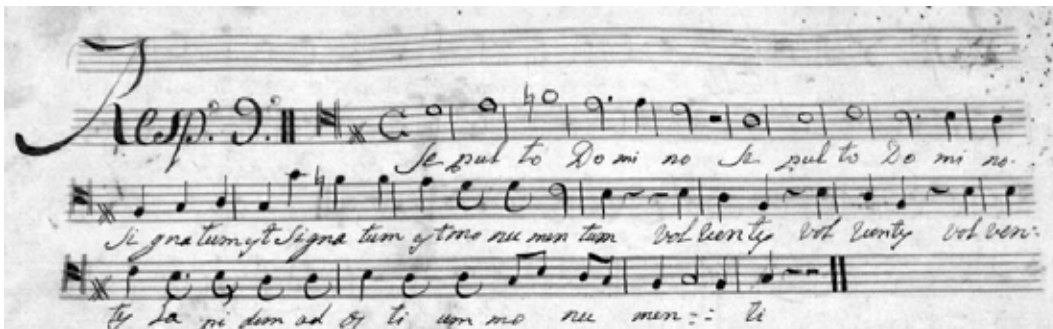 Resp.º 9.º
Se pul to Do mi no Se pul to Do mi no.
Si gna tum est Signa tum est mo nu men tum vol ventes vol ventes vol ven:
tes La pi dem ad os ti um mo nu men:: ti